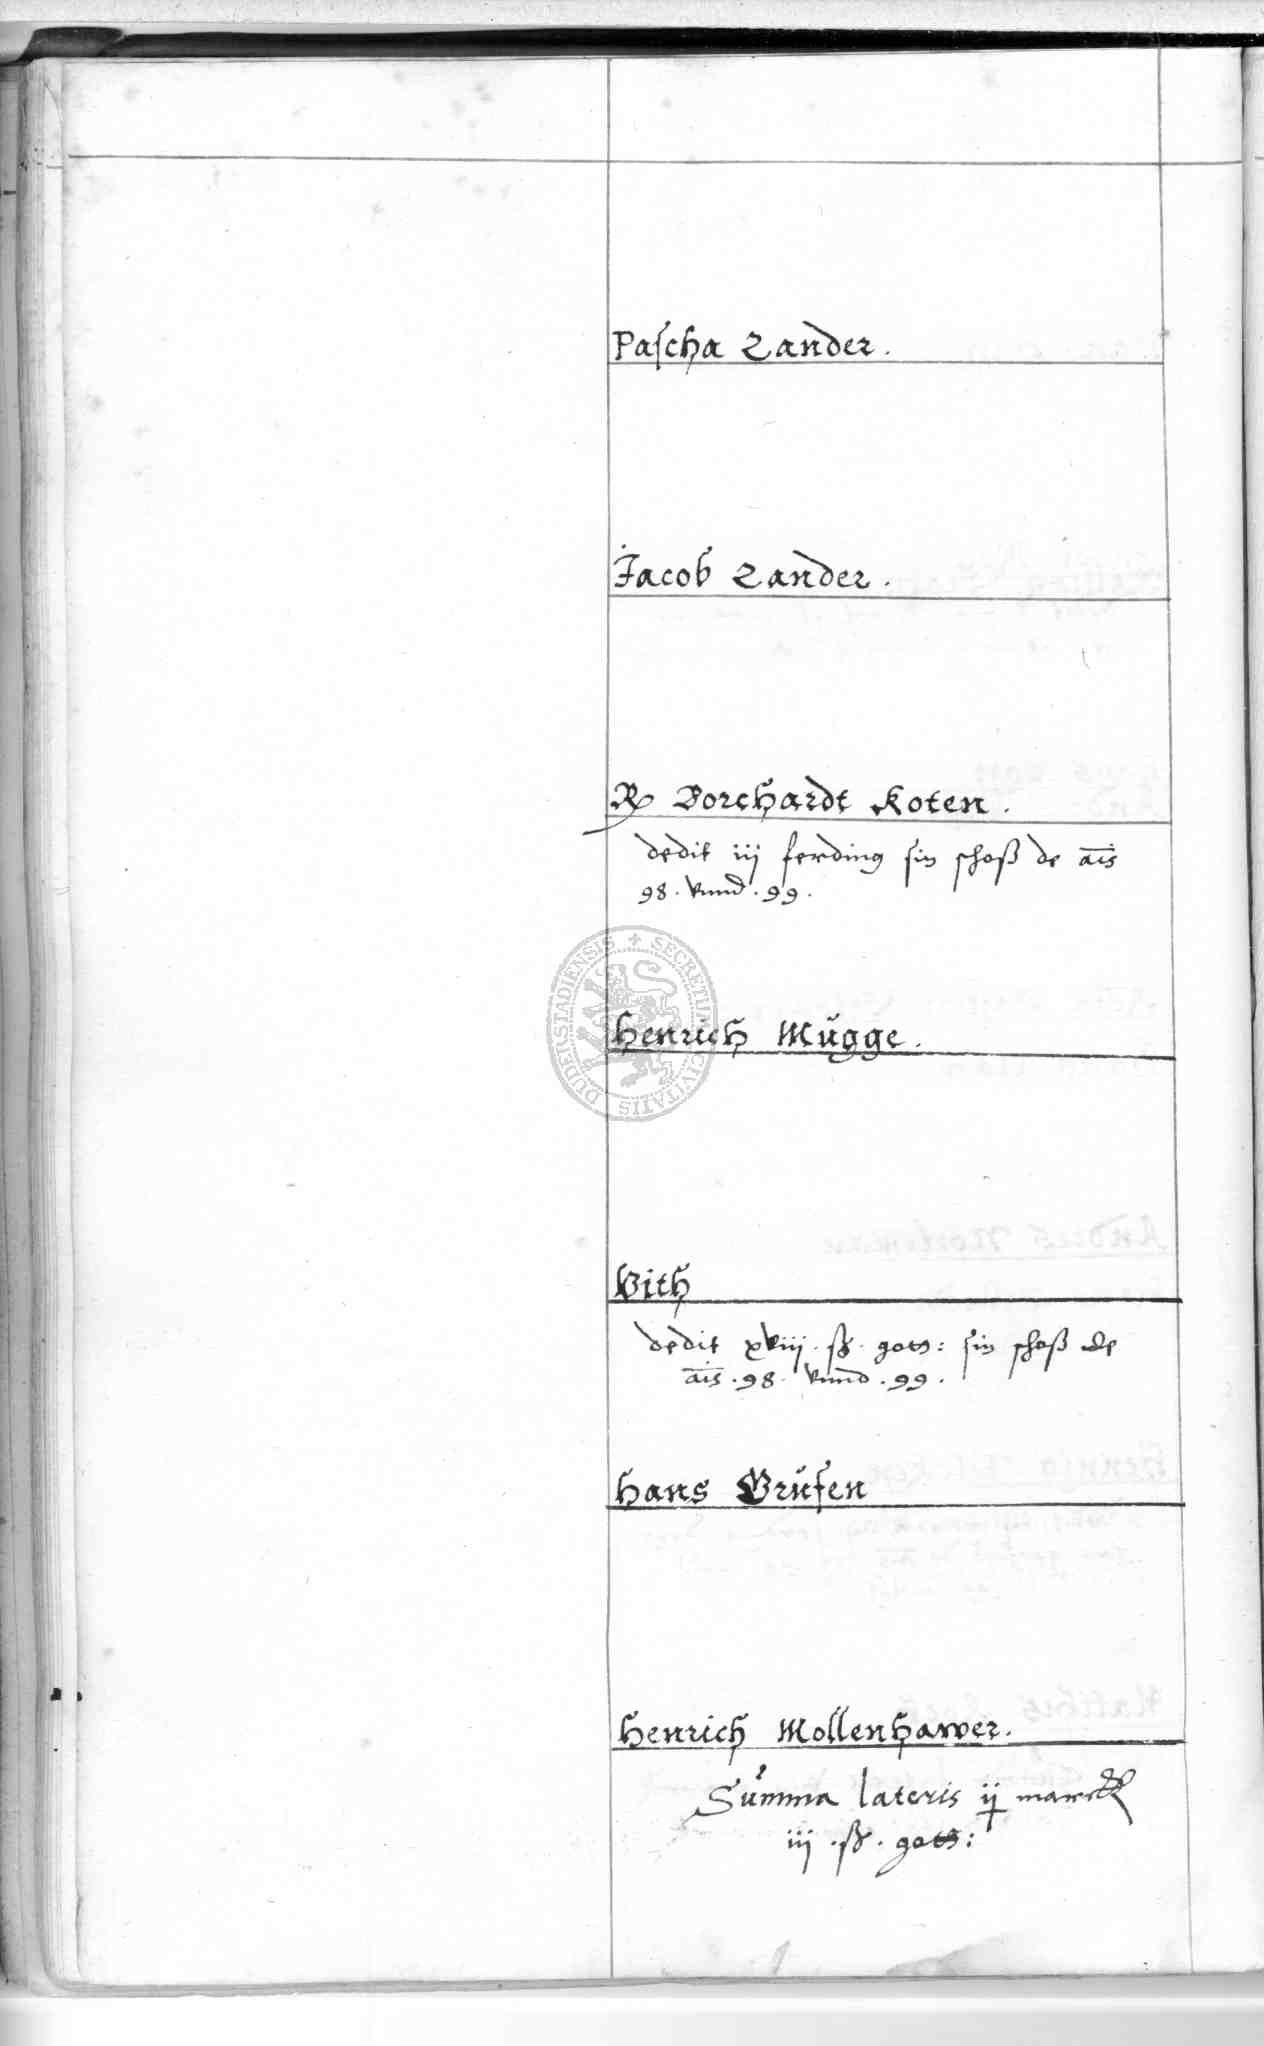 Pascha Zander.
Jacob Zander.
R Borchardt Koten.
dedit iij ferding sin schoß de a̅is
98. vnnd. 99.
SECRETUM CIVITATIS DUDERSTADIENSIS
Henrich Mügge.
Vith
dedit xviij. ß. gots: sin schoß de
a̅is. 98. vnnd. 99.
Hans Grüsen
Henrich Mollenhawer.
Summa lateris ij marck
iij. ß. gots: